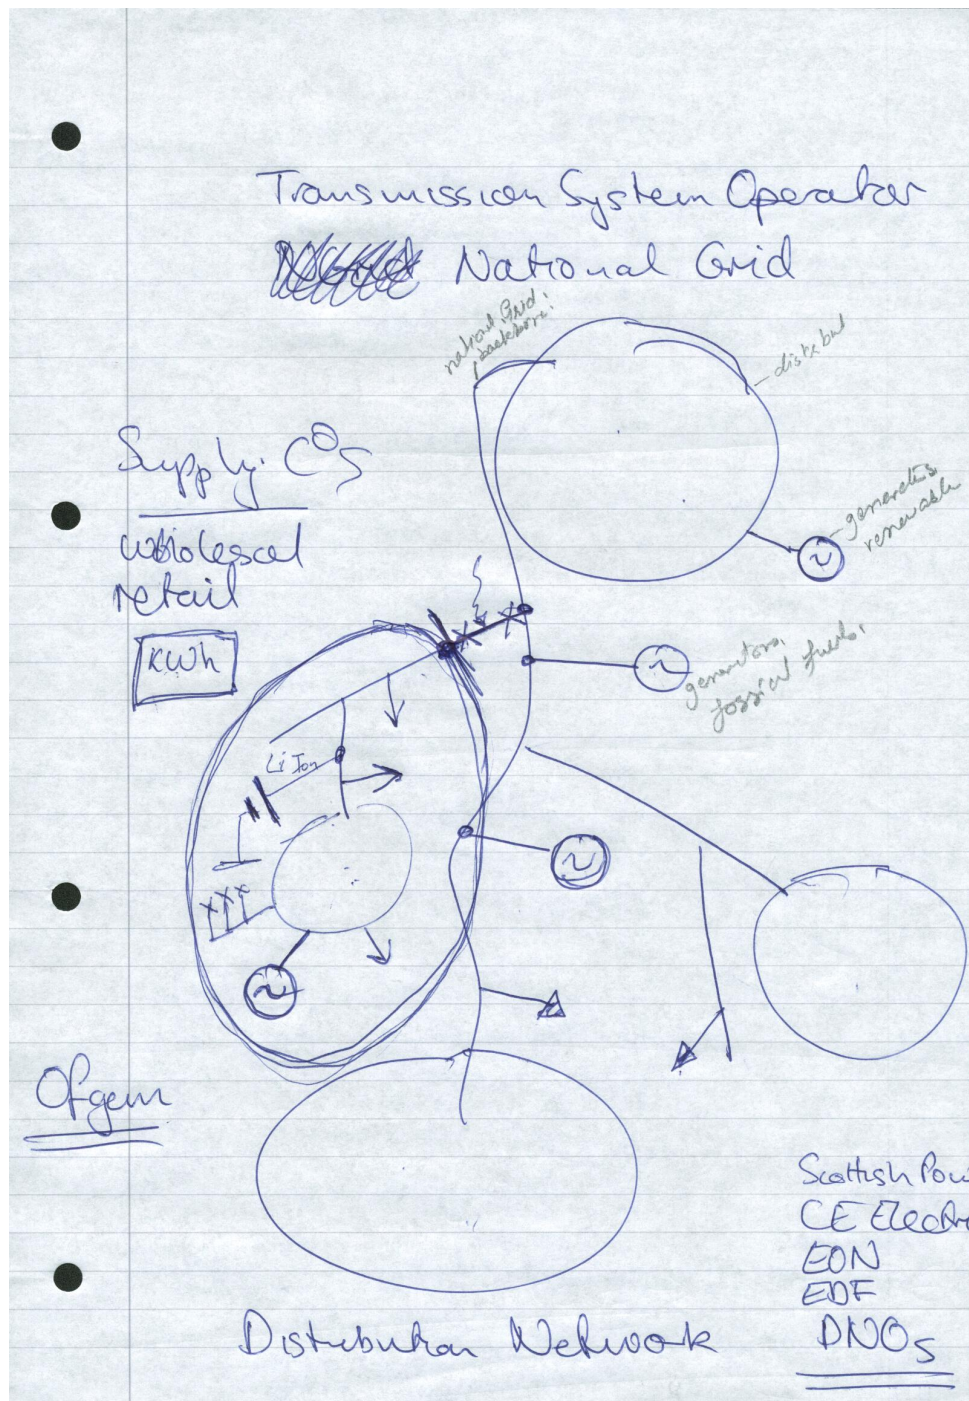 Transmission System Operator
National Grid
national Grid
backbone:
distribut
Supply: Cos
wholescal
retail
KWh
generators
renewable
generators,
fossial fuels,
Li Ion
Ofgem
Scottish Pow
CE Electri
EON
EDF
DNOs
Distribution Network